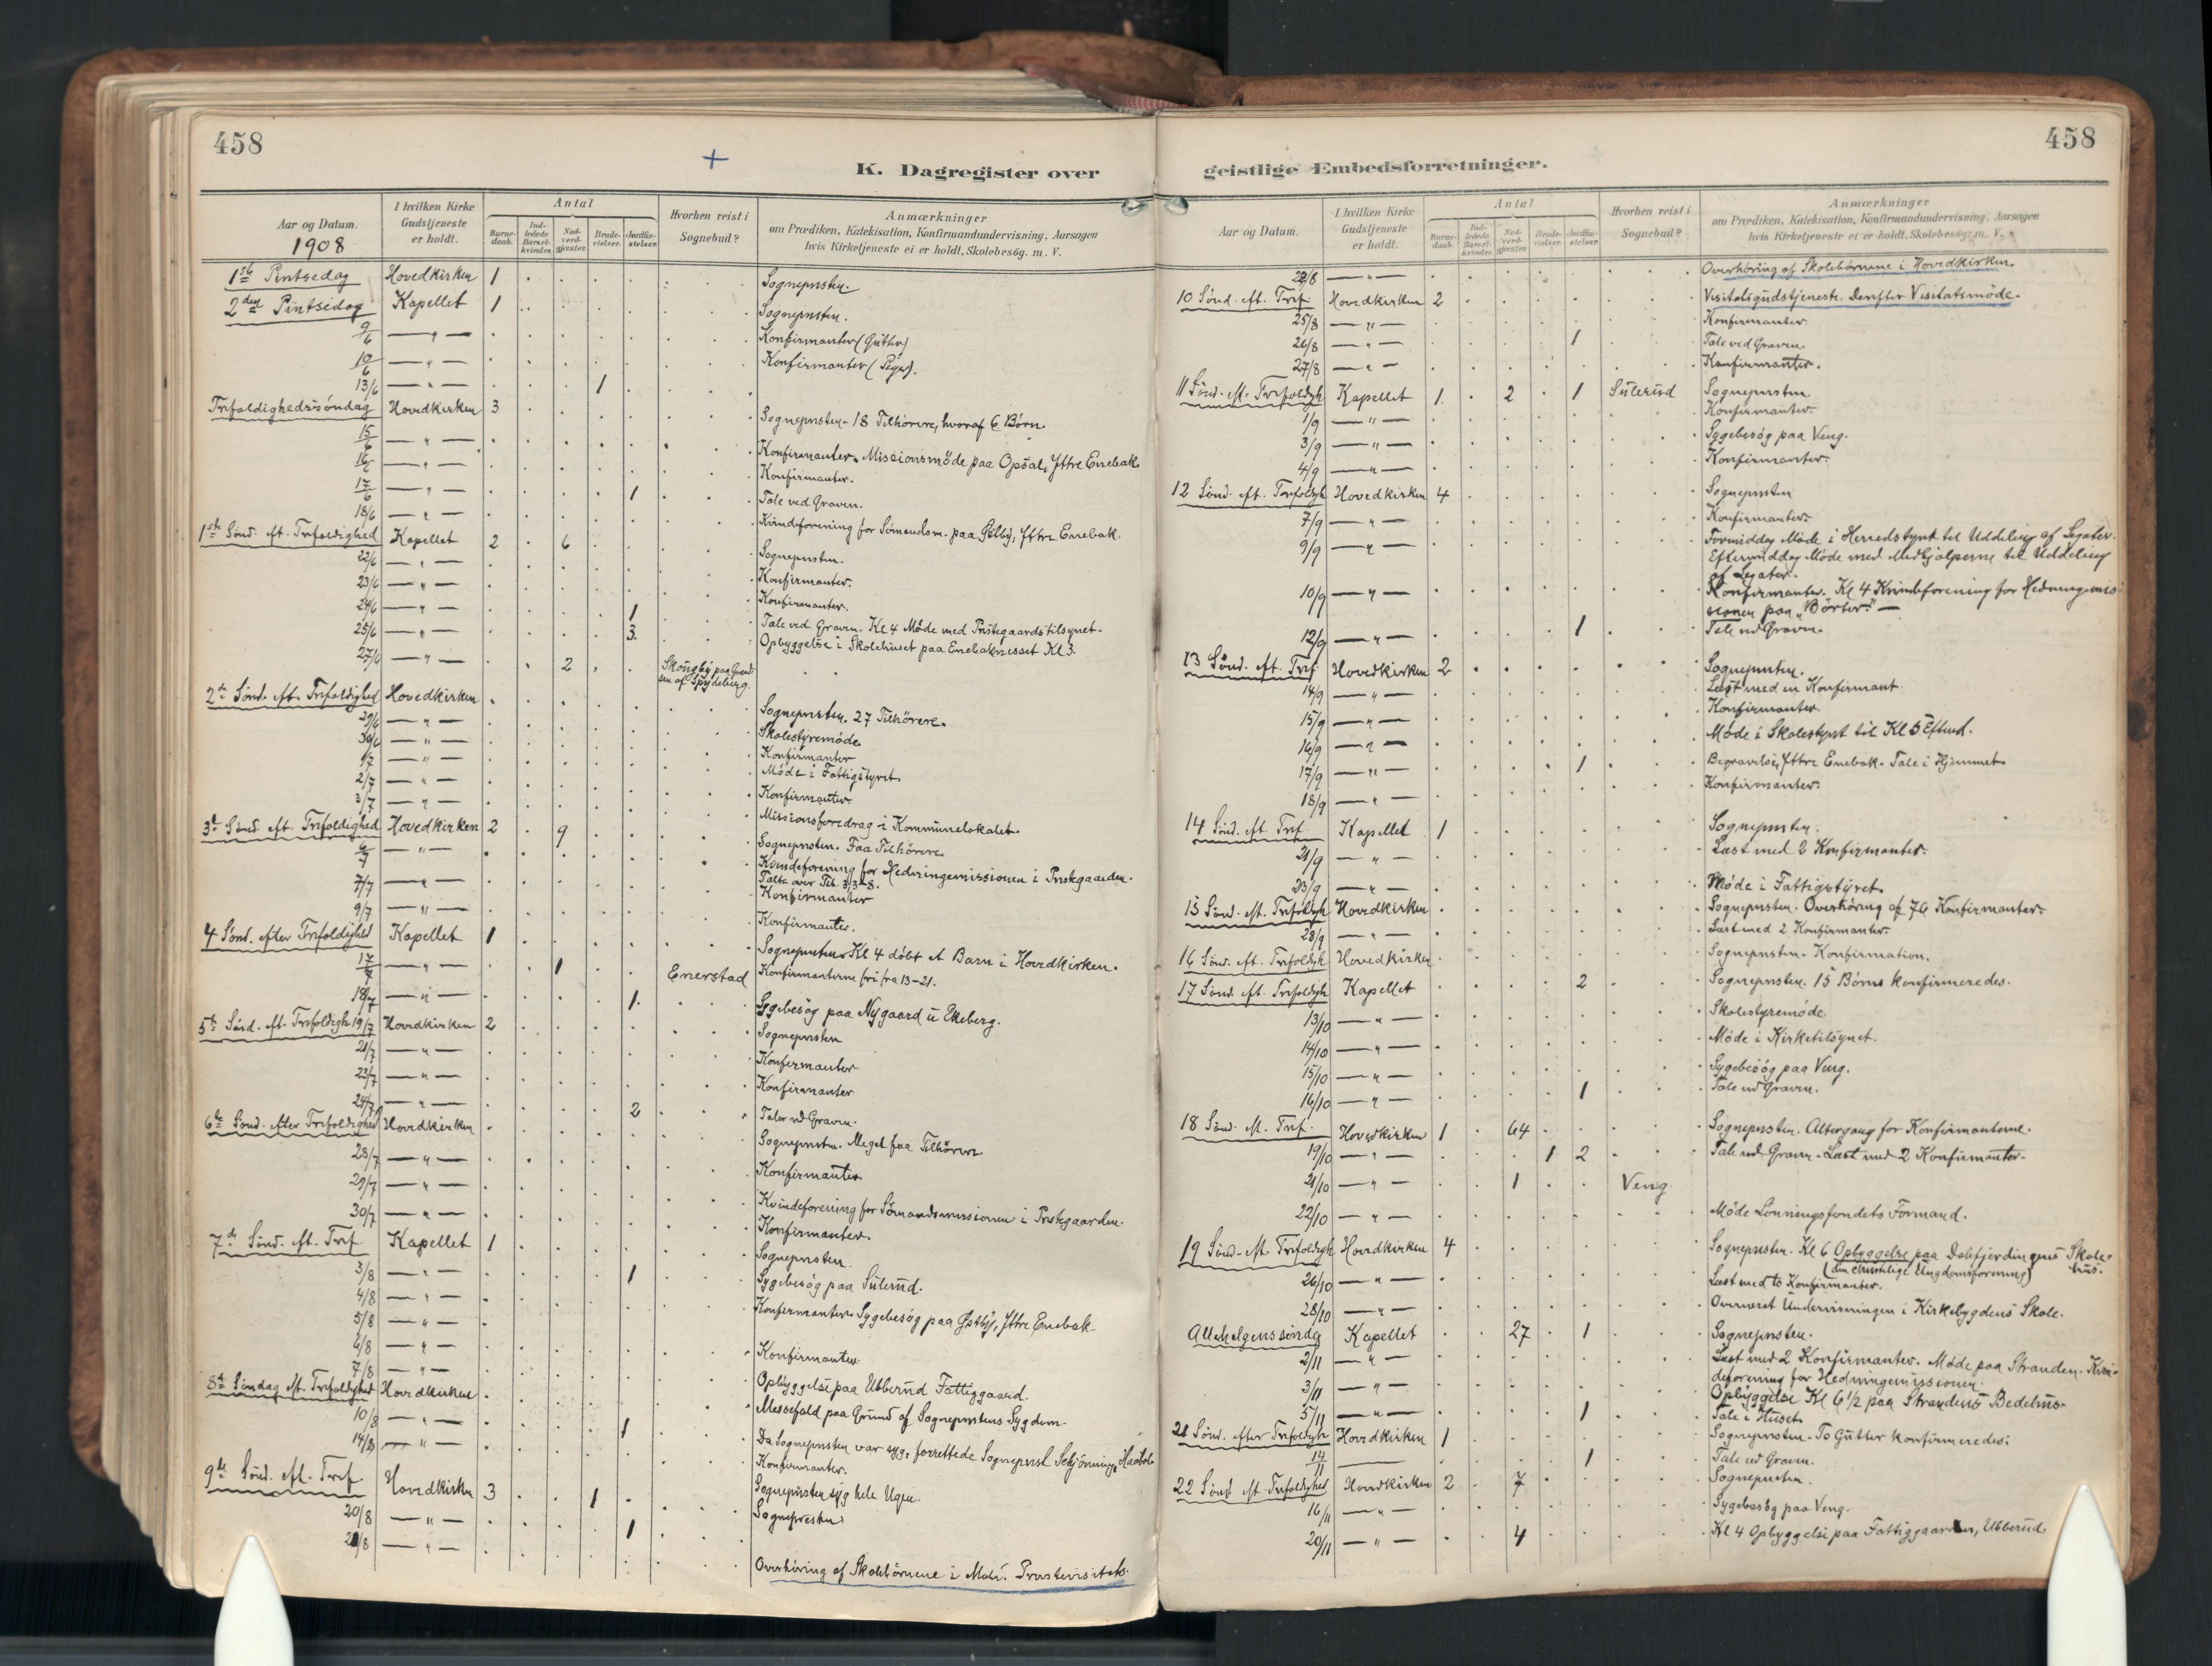 458
K. Dagregister over
Aar og Datum.
1908
I hvilken Kirke Gudstjeneste er holdt.
Antal
Barne-daab.
Ind-ledede Barsel-kvinder.
Nad-verd-gjester.
Brude-vielser.
Jordfæ-stelser.
Hvorhen reist i Sognebud?
Anmærkninger
om Prædiken, Katekisation, Konfirmandundervisning, Aarsagen
hvis Kirketjeneste ei er holdt, Skolebesøg. m. V.
1ste Pintsedag Hovedkirken 1 Sognepresten.
2den Pintsedag Kapellet 1 Sognepresten.
9/6 — " — Konfirmanter (Gutter)
10/6 — " — Konfirmanter (Piger).
13/6 — " — 1
Trefoldighedssøndag Hovedkirken 3 Sognepresten - 18 Tilhörere, hvoraf 6 Börn.
15/6 — " — Konfirmanter. Missionsmöde paa Opsal, Ytre Enebak.
16/6 — " — Konfirmanter.
17/6 — " — 1 Tale ved Graven.
18/6 — " — Kvindeforening for Sömandsm. paa Gilby, Ytre Enebak.
1ste Sönd. eft. Trefoldighed Kapellet 2 6 Sognepresten.
22/6 — " — Konfirmanter.
23/6 — " — Konfirmanter.
24/6 — " — 1 Tale ved Graven. Kl 4 Möde med Prestegaardstilsynet.
25/6 — " — 3 Opbyggelse i Skolehuset paa Enebaknesset Kl 3.
27/6 — " — 2 Skougby paa Grænd-sen af Spydeberg.
2de Sönd. eft. Trefoldighed Hovedkirken Sognepresten. 27 Tilhörere.
29/6 — " — Skolestyremöde
30/6 — " — Konfirmanter
1/7 — " — Möde i Fattigstyret.
2/7 — " — Konfirmanter.
3/7 — " — Missionsforedrag i Kommunelokalet.
3de Sönd. eft. Trefoldighed Hovedkirken 2 9 Sognepresten. Faa Tilhörere.
6/7 — " — Kvindeforening for Hedningemissionen i Prestegaarden.
Talte over Tit. 3, 3-8.
7/7 — " — Konfirmanter
9/7 — " — Konfirmanter.
4 Sönd. efter Trefoldighed Kapellet 1 Sognepresten. Kl 4 döbt et Barn i Hovedkirken.
17/7 — " — 1 Enerstad Konfirmanterne fri fra 13-21.
18/7 — " — 1 Sygebesög paa Nygaard u Ekeberg.
5te Sönd. eft. Trefoldigh 19/7 Hovedkirken 2 Sognepresten
21/7 — " — Konfirmanter
23/7 — " — Konfirmanter
24/7 — " — 2 Taler ved Graven.
6te Sönd. efter Trefoldighed Hovedkirken Sognepresten. Meget faa Tilhörere.
28/7 — " — Konfirmanter
29/7 — " — Kvindeforening for Sömandsmissionen i Prestegaarden.
30/7 — " — Konfirmanter.
7de Sönd. eft. Tref Kapellet 1 Sognepresten.
3/8 — " — 1 Sygebesög paa Sulerud.
4/8 — " — Konfirmanter. Sygebesög paa Østby, Ytre Enebak
5/8 — " —
6/8 — " — Konfirmanter.
7/8 — " — Opbyggelse paa Ubberud Fattiggaard.
8de Söndag eft. Trefoldighed Hovedkirken Messefald paa Grund af Sogneprestens Sygdom.
10/8 — " — 1 Da Sognepresten var syg, forrettede Sogneprest Schjönning, Haabøl
14/8 — " — Konfirmanter.
9de Sönd. eft. Tref Hovedkirken 3 1 Sognepresten syg hele Ugen.
20/8 — " — 1 Sognepresten
21/8 — " — Overhöring af Skolebörnene i Mari. Prostevisitats.
458
geistlige Embedsforretninger.
Aar og Datum.
I hvilken Kirke Gudstjeneste er holdt.
Antal
Barne-daab.
Ind-ledede Barsel-kvinder.
Nad-verd-gjester.
Brude-vielser.
Jordfæ-stelser.
Hvorhen reist i Sognebud?
Anmærkninger
om Prædiken, Katekisation, Konfirmandundervisning, Aarsagen
hvis Kirketjeneste ei er holdt, Skolebesøg. m. V.
22/8 — " — Overhöring af Skolebörnene i Hovedkirken.
10 Sönd. eft. Tref Hovedkirken 2 Visitatsgudstjeneste. Derefter Visitatsmöde.
25/8 — " — Konfirmanter.
26/8 — " — 1 Tale ved Graven.
27/8 — " — Konfirmanter.
11 Sönd. eft. Trefoldigh Kapellet 1 2 1 Sulerud Sognepresten
1/9 — " — Konfirmanter.
3/9 — " — Sygebesög paa Veng.
4/9 — " — Konfirmanter.
12 Sönd. eft. Trefoldigh Hovedkirken 4 Sognepresten
7/9 — " — Konfirmanter.
9/9 — " — Formiddag Möde i Herredstyret til Uddeling af Legater.
Eftermiddag Möde med Medhjælperne til Uddeling
af Legater.
10/9 — " — Konfirmanter. Kl 4 Kvindeforening for Hedningemis-
sionen paa "Börter". —
12/9 — " — 1 Tale ved Graven.
13 Sönd. eft. Tref. Hovedkirken 2 Sognepresten.
14/9 — " — Læst med en Konfirmant
15/9 — " — Konfirmanter.
16/9 — " — Möde i Skolestyret til Kl 5 Efterm.
17/9 — " — 1 Begravelse, Ytre Enebak. Tale i Hjemmet
18/9 — " — Konfirmanter.
14 Sönd. eft Tref Kapellet 1 Sognepresten.
21/9 — " — Læst med 2 Konfirmanter.
23/9 — " — Möde i Fattigstyret.
15 Sönd. eft. Trefoldigh Hovedkirken Sognepresten. Overhöring af 76 Konfirmanter.
28/9 — " — Læst med 2 Konfirmanter.
16 Sönd. eft. Trefoldigh Hovedkirken Sognepresten. Konfirmation.
17 Sönd. eft. Trefoldigh Kapellet 2 Sognepresten. 15 Börns konfirmeredes.
13/10 — " — Skolestyremöde.
14/10 — " — Möde i Kirketilsynet.
15/10 — " — Sygebesög paa Veng.
16/10 — " — 1 Tale ved Graven.
18 Sönd. eft. Tref. Hovedkirken 1 64 Sognepresten. Altergang for Konfirmanterne.
19/10 — " — 1 2 Tale ved Graven. Læst med 2 Konfirmanter.
21/10 — " — 1 Veng.
22/10 — " — Möde Lönningsfondets Formand.
19 Sönd. eft Trefoldigh Hovedkirken 4 Sognepresten. Kl 6 Opbyggelse paa Dalefjerdingens Skole-
hus. (den christelige Ungdomsforening)
26/10 — " — Læst med to Konfirmanter.
28/10 — " — Overværet Undervisningen i Kirkebygdens Skole.
Allehelgenssöndag Kapellet 27 1 Sognepresten.
2/11 — " — Læst med 2 Konfirmanter. Möde paa Stranden. Kvin-
deforening for Hedningemissionen.
3/11 — " — Opbyggelse Kl 6 1/2 paa Strandens Bedehus.
5/11 — " — 1 Tale i Huset
21 Sönd. efter Trefoldigh Hovedkirken 1 Sognepresten. To Gutter konfirmeredes.
14/11 — 1 Tale ved Graven.
22 Sönd eft. Trefoldighed Hovedkirken 2 7 Sognepresten.
16/11 — " — Sygebesög paa Veng.
20/11 — " — 4 Kl 4 Opbyggelse paa Fattiggaarden, Ubberud.